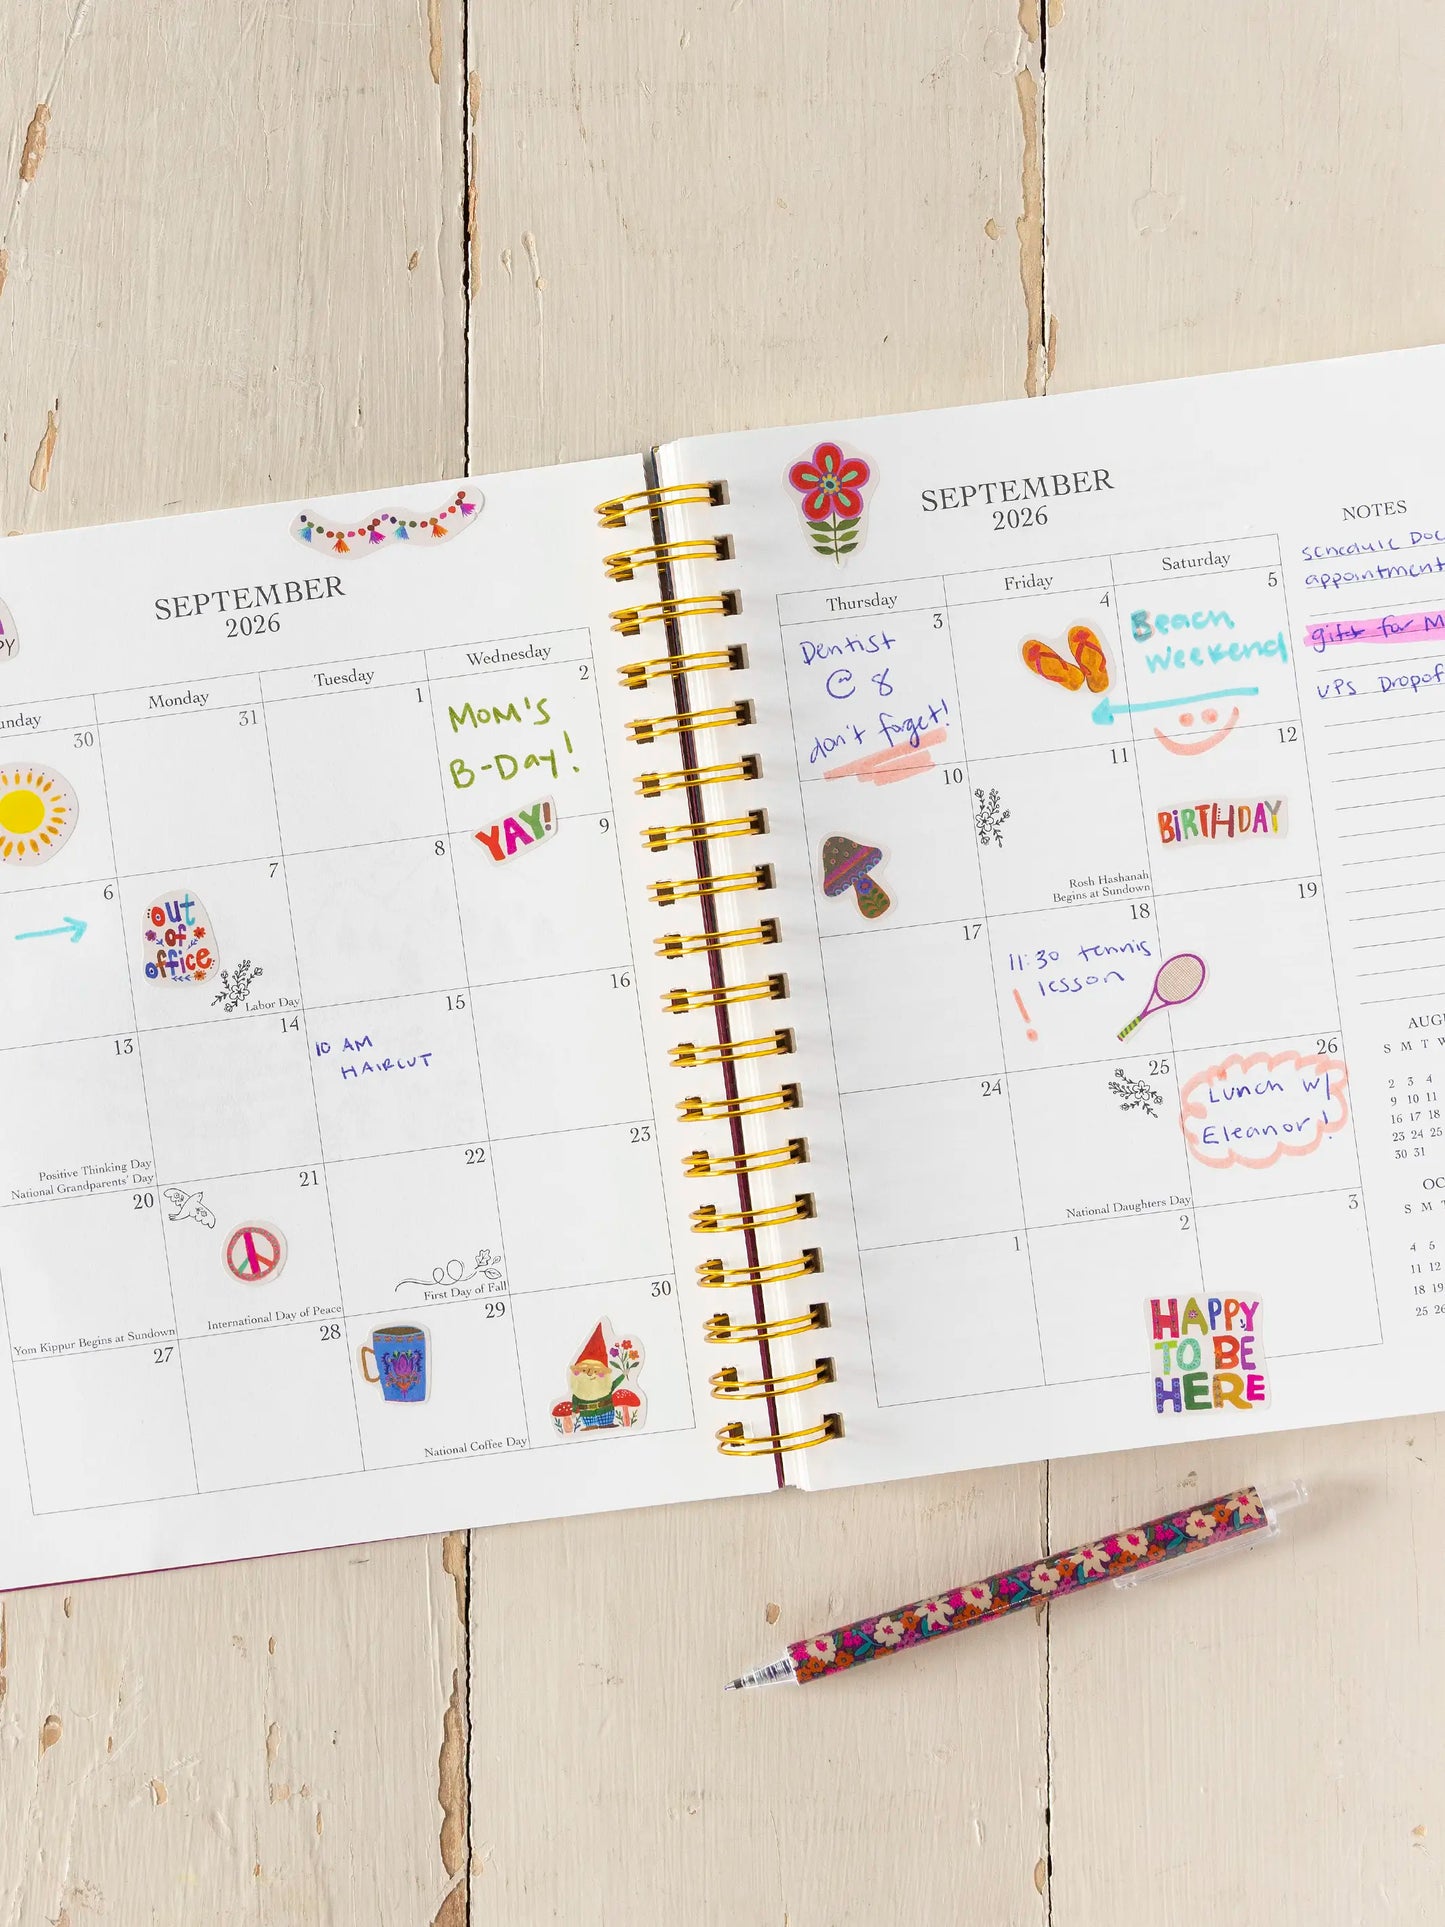 PY
SEPTEMBER
2026
Monday
Tuesday
Wednesday
30
31
1
2
MOM'S
B-DAY!
YAY!
6
7
out
of
office
Labor Day
8
9
13
Positive Thinking Day
National Grandparents' Day
14
15
10 AM
HAIRCUT
16
20
Yom Kippur Begins at Sundown
21
International Day of Peace
22
First Day of Fall
23
27
28
29
National Coffee Day
30
SEPTEMBER
2026
Thursday
Friday
Saturday
3
Dentist
@ 8
don't forget!
4
5
Beach
Weekend
10
11
Rosh Hashanah
Begins at Sundown
12
BIRTHDAY
17
18
11:30 tennis
lesson
!
19
24
25
National Daughters Day
26
Lunch w/
Eleanor!
1
2
3
HAPPY
TO BE
HERE
NOTES
schedule Doc
appointment
gift for M
UPS Dropof
AUG
S M T W
2 3 4
9 10 11
16 17 18
23 24 25
30 31
OC
S M T
4 5
11 12
18 19
25 26